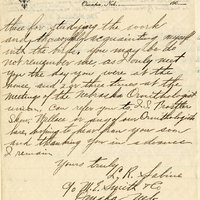 Omaha, Neb. 190
thus for studying the work
and thoroughly acquainting myself
with the birds. You may be do
not remember me, as I only met
you the day you were at the
house, and 2 or three times at the
meetings of the Nebraska Ornithologist
union. Can refer you to I. S. Trostler
Shaw, Wallace or any of our Ornithologists
here, hoping to hear from you soon
and thanking you in advance
I remain
Yours truly,
R. Sabine
c/o M. E. Smith & Co
Omaha Neb